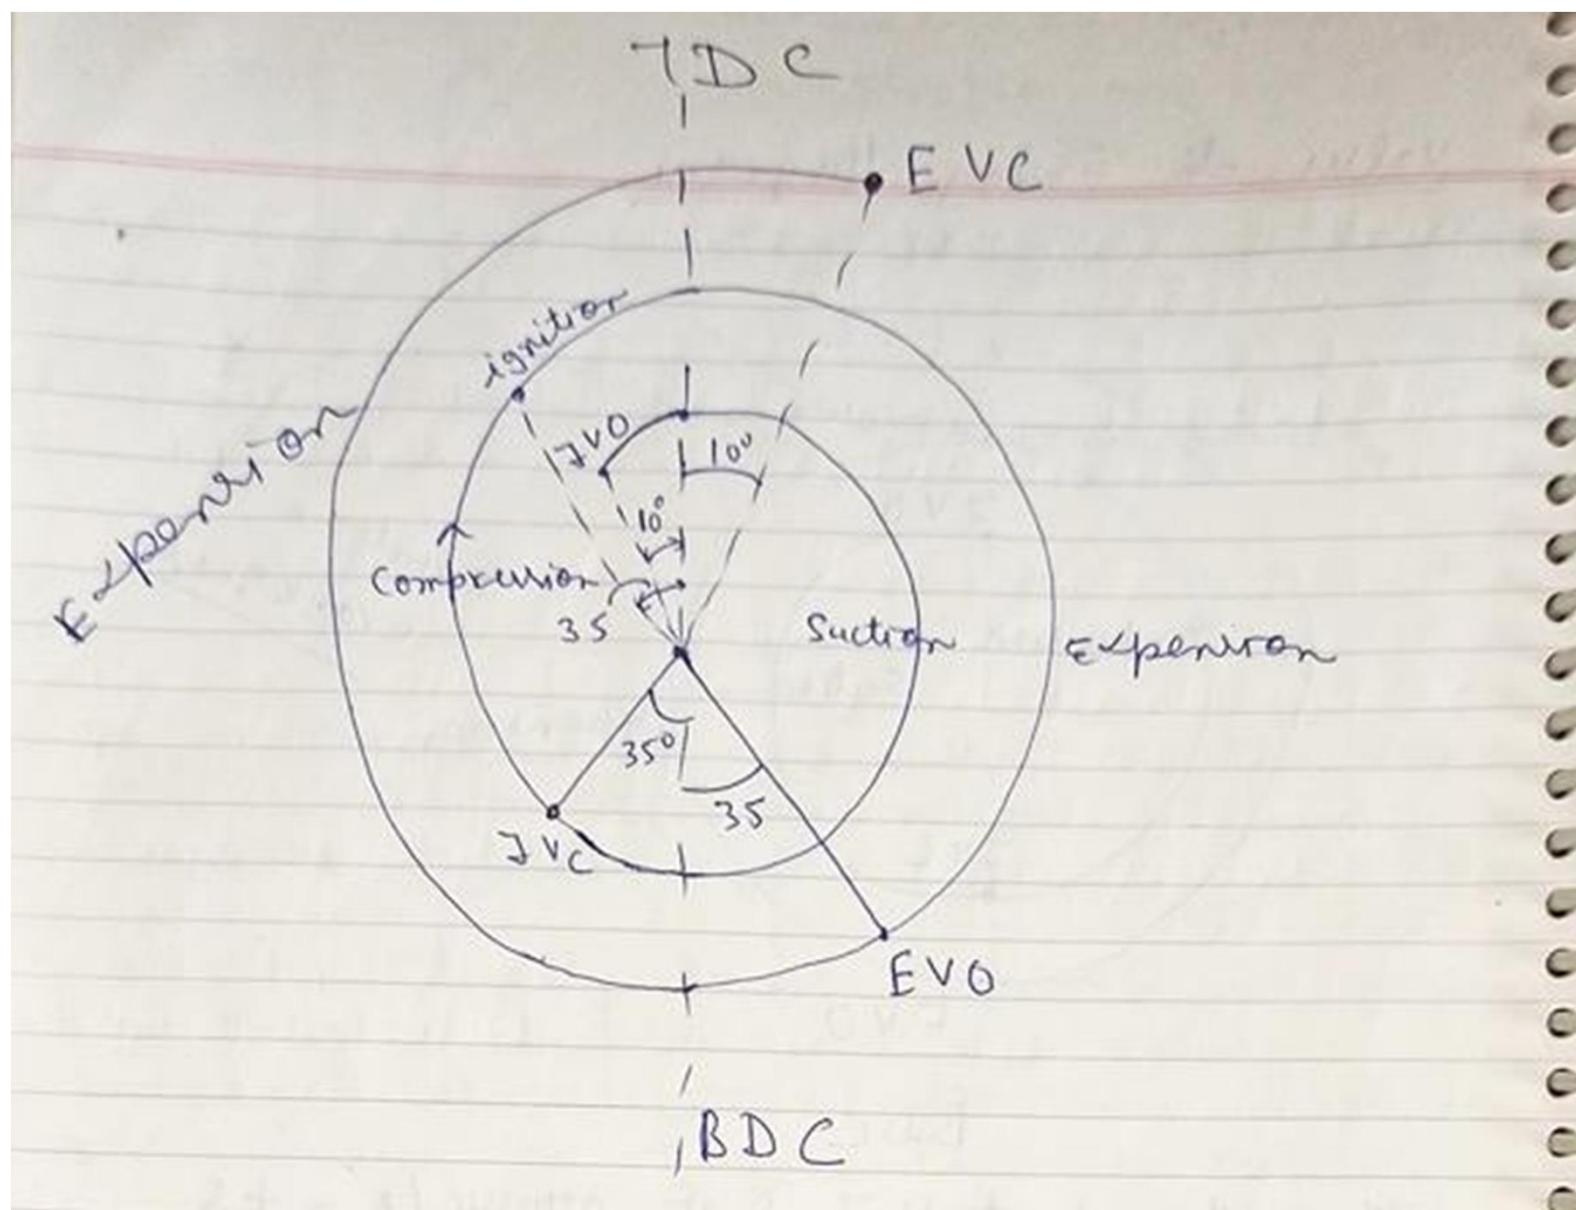 TDC
EVC
ignition
IVO
10°
10°
Expension
Compression
35
Suction
Expension
35°
35
IVC
EVO
BDC